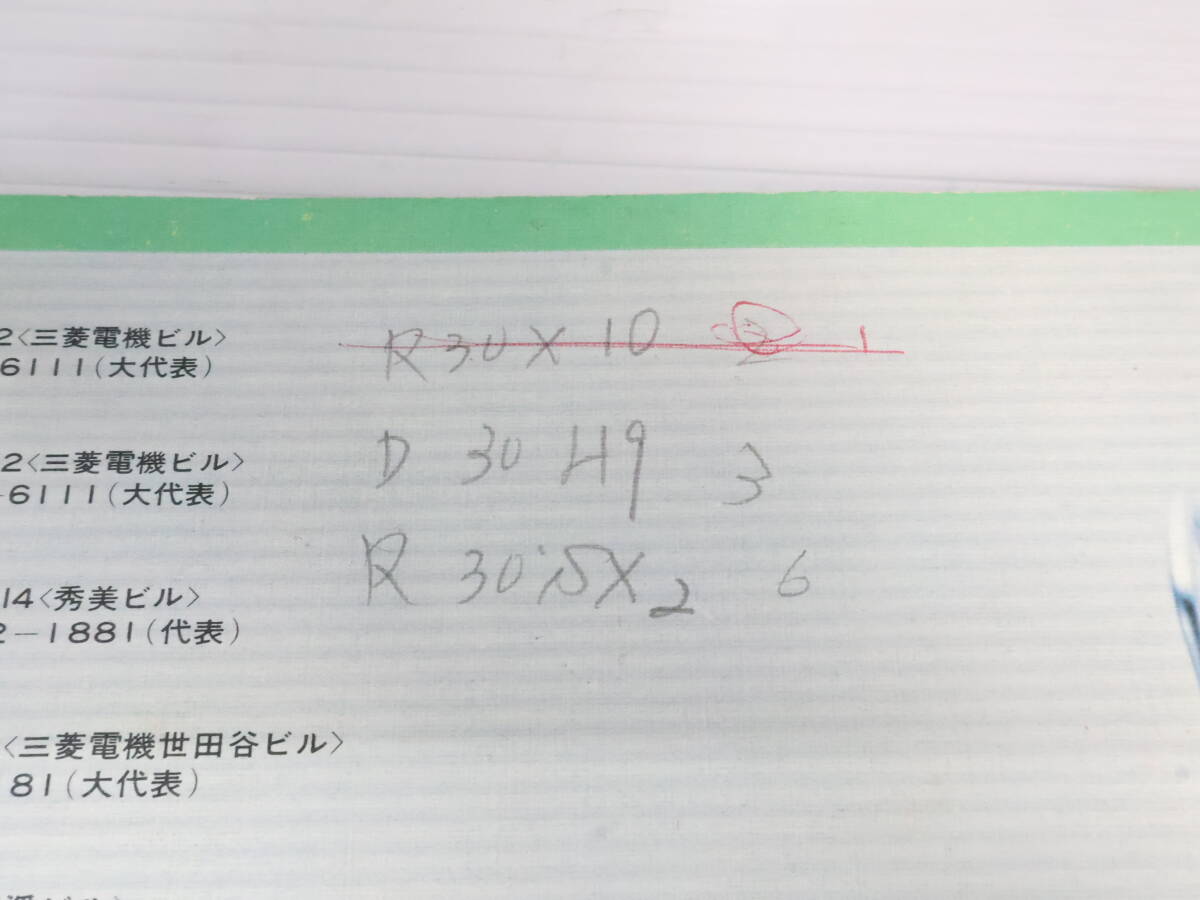 2〈三菱電機ビル〉
6111(大代表)
2〈三菱電機ビル〉
-6111(大代表)
14〈秀美ビル〉
2-1881(代表)
〈三菱電機世田谷ビル〉
181(大代表)
ビル〉
R 30 X 10 1
D 30 H9 3
R 30 SX2 6